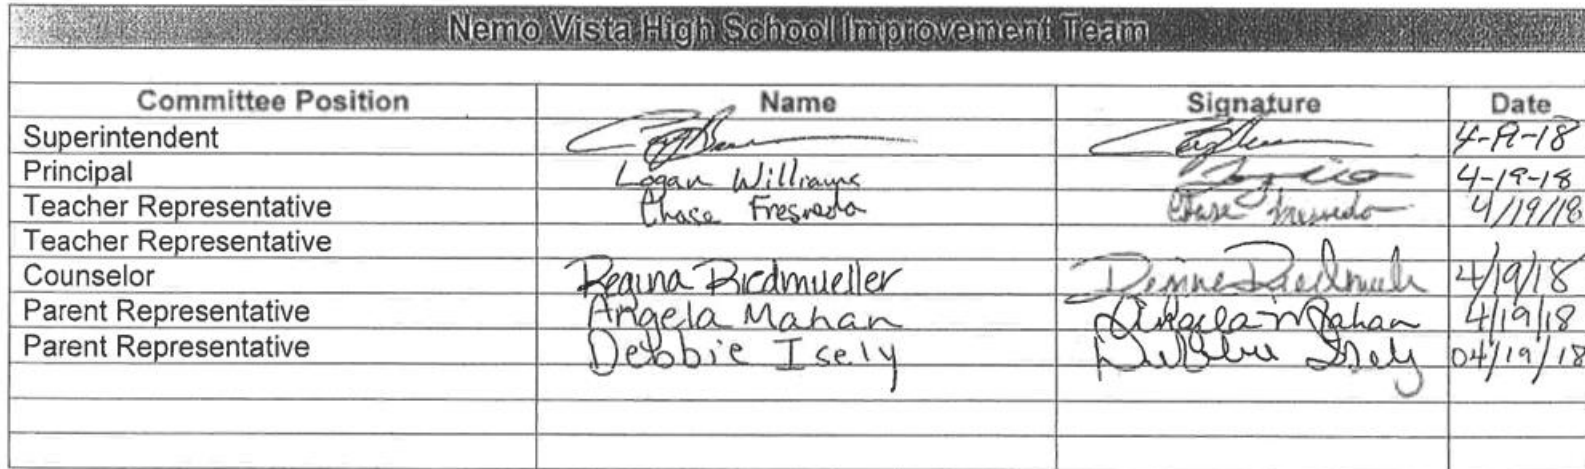 Nemo Vista High School Improvement Team
Committee Position Name Signature Date
Superintendent 4-19-18
Principal Logan Williams 4-19-18
Teacher Representative Chase Fresneda Chase Fresneda 4/19/18
Teacher Representative
Counselor Regina Birdmueller 4/19/18
Parent Representative Angela Mahan Angela Mahan 4/19/18
Parent Representative Debbie Isely Debbie Isely 04/19/18